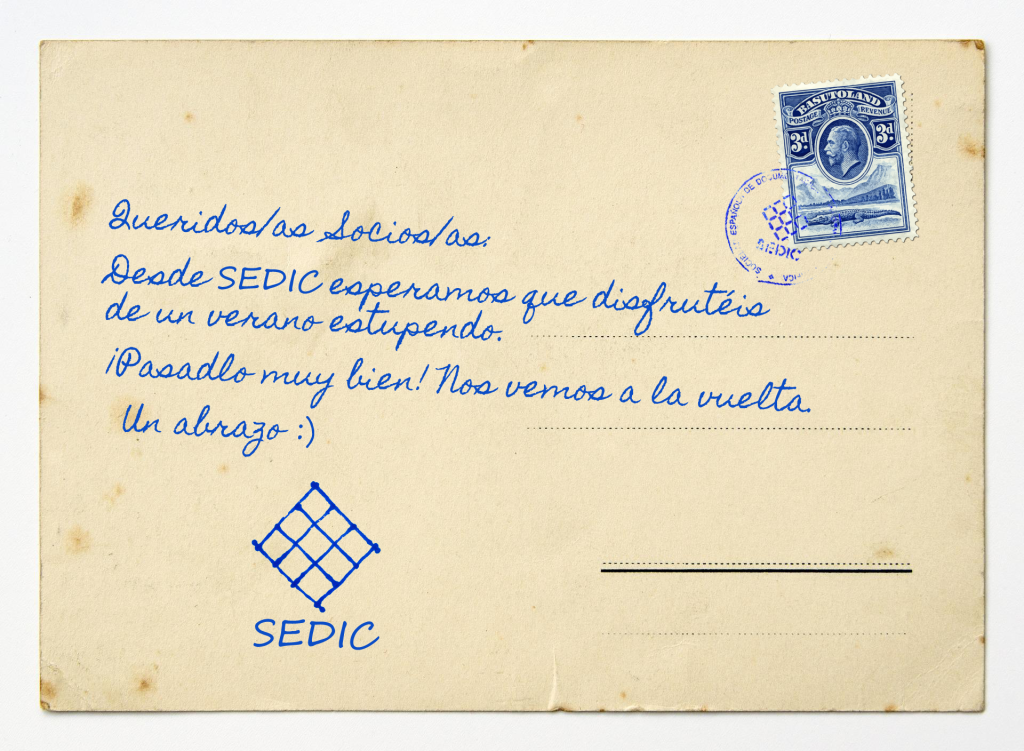 BASUTOLAND
POSTAGE REVENUE
3d. 3d.
ESPAÑOLA DE
SEDIC
Queridos/as Socios/as:
Desde SEDIC esperamos que disfrutéis
de un verano estupendo.
¡Pasadlo muy bien! Nos vemos a la vuelta.
Un abrazo :)
SEDIC